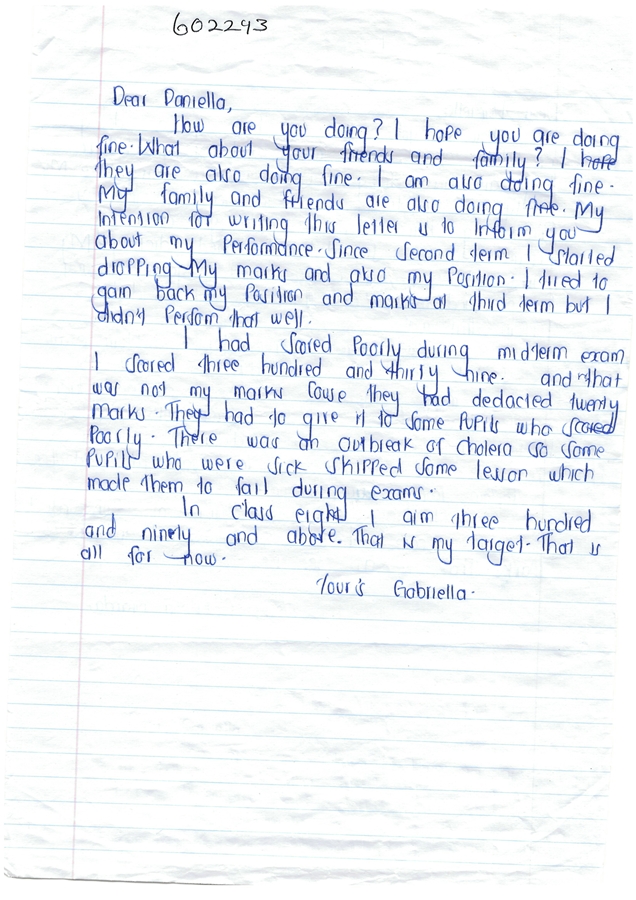 602293
Dear Daniella,
How are you doing? I hope you are doing
fine. What about your friends and family? I hope
they are also doing fine. I am also doing fine.
My family and friends are also doing fine. My
Intention for writing this letter is to Inform you
about my Performance. Since second term I started
dropping My marks and also my Position. I tried to
gain back my Position and marks at third term but I
didn't Perfom that well.
I had scored Poorly during midterm exam
I scored three hundred and thirty nine. and that
was not my marks cause they had dedacted twenty
marks. They had to give it to some Pupils who scored
Poorly. There was an outbreak of cholera so some
Pupils who were sick skipped some lesson which
made them to fail during exams.
In class eight I aim three hundred
and ninety and above. That is my target. That is
all for now.
Your's Gabriella.